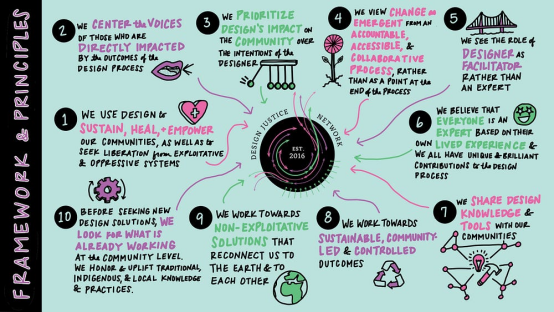 FRAMEWORK & PRINCIPLES
1
WE USE DESIGN to
SUSTAIN, HEAL, + EMPOWER
OUR COMMUNITIES, AS WELL AS to
SEEK LIBERATION from EXPLOITATIVE
& OPPRESSIVE SYSTEMS
2
WE CENTER the VOICES
OF THOSE WHO ARE
DIRECTLY IMPACTED
BY the OUTCOMES of the
DESIGN PROCESS
3
WE PRIORITIZE
DESIGN'S IMPACT on
THE COMMUNITY OVER
THE INTENTIONS of the
DESIGNER
4
WE VIEW CHANGE as
EMERGENT FROM AN
ACCOUNTABLE,
ACCESSIBLE, &
COLLABORATIVE
PROCESS, RATHER
THAN AS A POINT AT the
END of the PROCESS
5
WE SEE THE ROLE OF
DESIGNER AS
FACILITATOR
RATHER THAN
AN EXPERT
6
WE BELIEVE THAT
EVERYONE IS AN
EXPERT BASED ON THEIR
OWN LIVED EXPERIENCE &
WE ALL HAVE UNIQUE & BRILLIANT
CONTRIBUTIONS to the DESIGN
PROCESS
7
WE SHARE DESIGN
KNOWLEDGE &
TOOLS WITH OUR
COMMUNITIES
8
WE WORK TOWARDS
SUSTAINABLE, COMMUNITY-
LED & CONTROLLED
OUTCOMES
9
WE WORK TOWARDS
NON-EXPLOITATIVE
SOLUTIONS THAT
RECONNECT US TO
THE EARTH & TO
EACH OTHER
10
BEFORE SEEKING NEW
DESIGN SOLUTIONS, WE
LOOK FOR WHAT IS
ALREADY WORKING
AT the COMMUNITY LEVEL.
WE HONOR & UPLIFT TRADITIONAL,
INDIGENOUS, & LOCAL KNOWLEDGE
& PRACTICES.
DESIGN JUSTICE NETWORK
EST.
2016